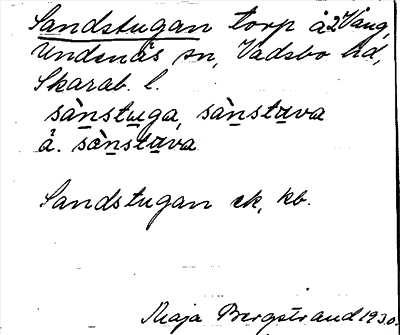 Sandstugan torp å 2 Vång,
Undenäs sn, Vadsbo hd,
Skarab. l.
sànstuga, sànstava
å. sànstava
Sandstugan ek, kb.
Maja Bergstrand 1930.